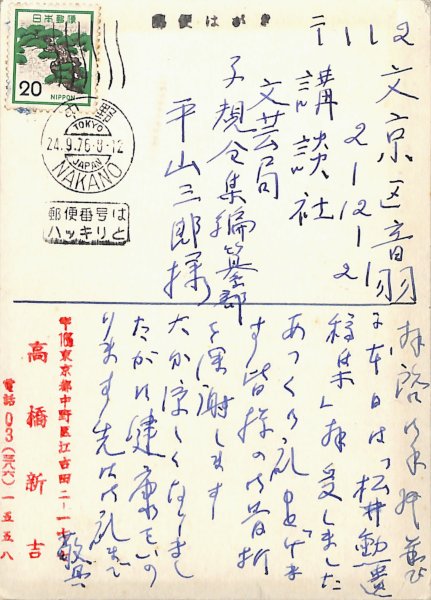 郵便はがき
日本郵便
20
NIPPON
中野
TOKYO
24.9.76.8-12
JAPAN
NAKANO
郵便番号は
ハッキリと
〒112
文京区音羽
2-12-2
講談社
文芸局
子規全集編纂部
平山三郎様
拝啓
本日は「松井勲遺
稿集」拝受しました
あつく御礼申上げま
す皆様の御骨折
を深謝します
大分涼しくなりまし
たが御健康をいの
ります先は御礼まで
敬具
東京都中野区江古田二ー一
高橋新吉
電話03(三八六)一五五八